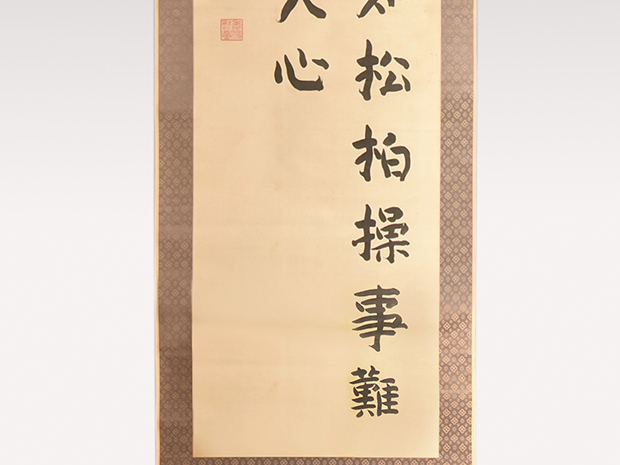 松柏操事難
心